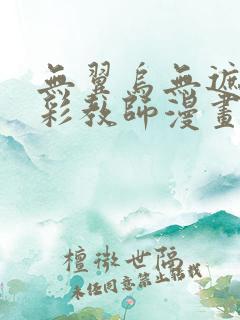 無翼鳥無遮
彩教師漫畫
檀徵世隔
未经同意禁止转载